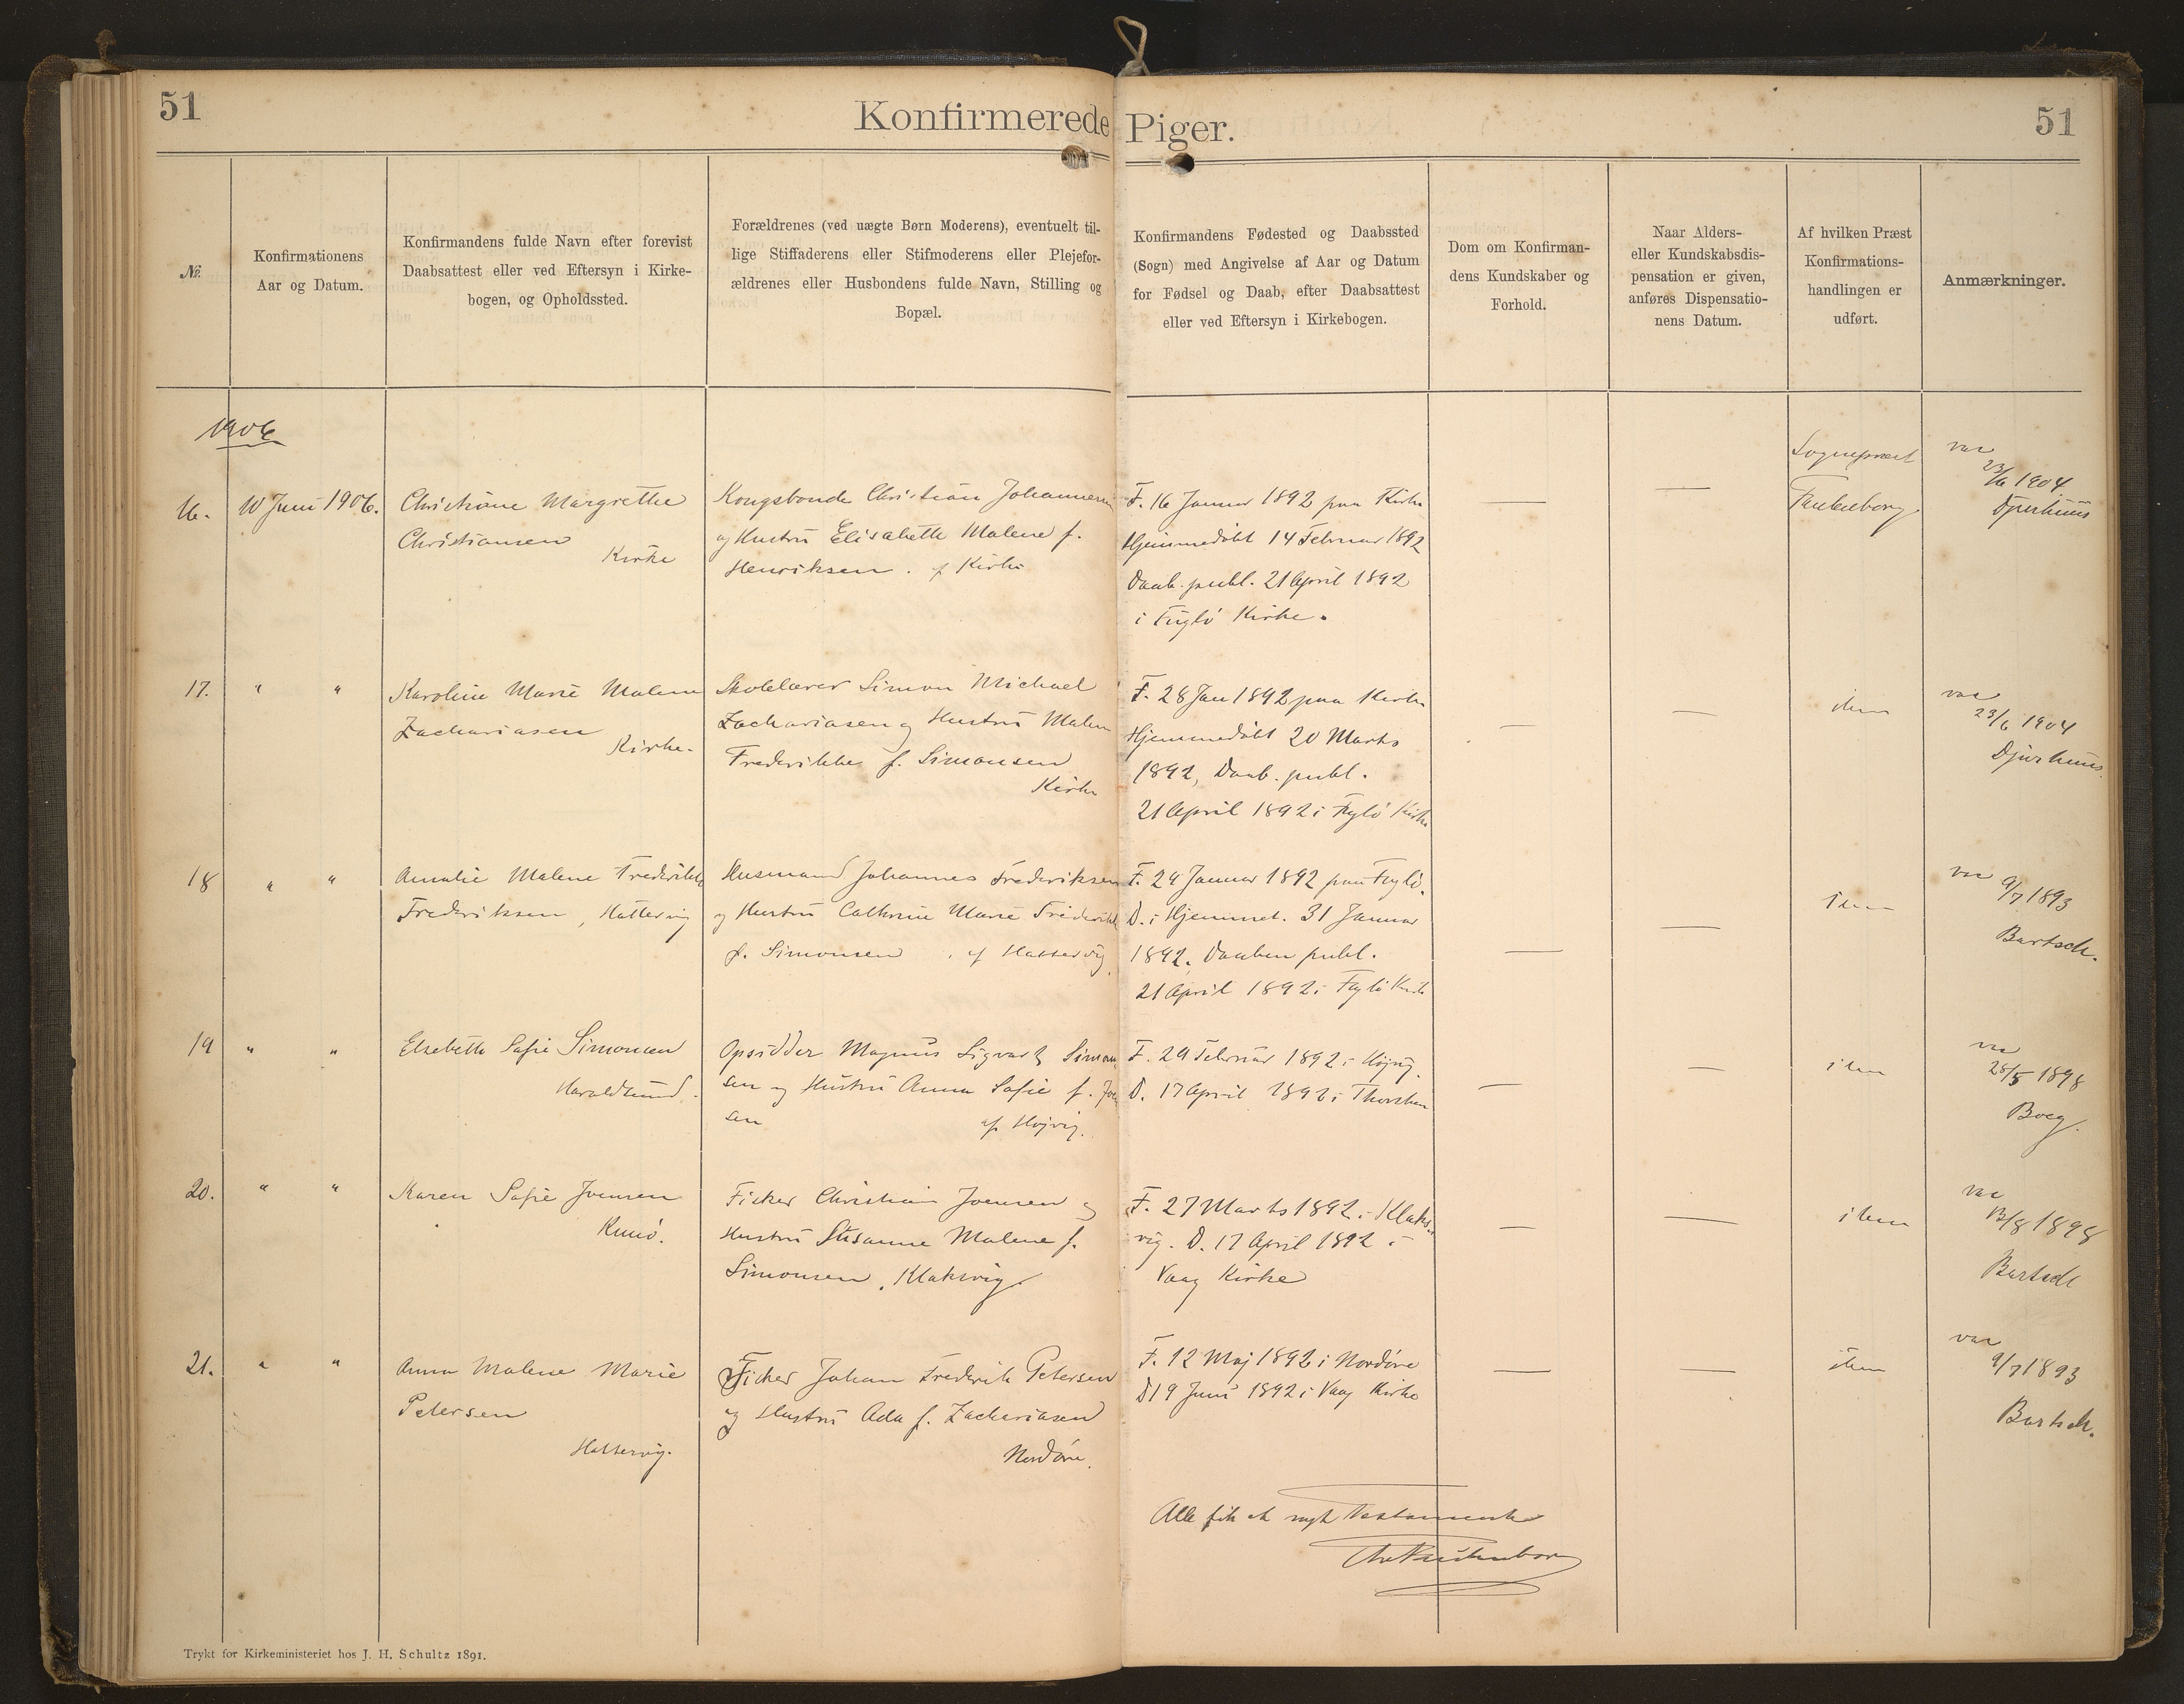 51
Konfirmerede Piger.
51
№.
Konfirmationens
Aar og Datum.
Konfirmandens fulde Navn efter forevist
Daabsattest eller ved Eftersyn i Kirke-
bogen, og Opholdssted.
Forældrenes (ved uægte Børn Moderens), eventuelt til-
lige Stiffaderens eller Stifmoderens eller Plejefor-
ældrenes eller Husbondens fulde Navn, Stilling og
Bopæl.
Konfirmandens Fødested og Daabssted
(Sogn) med Angivelse af Aar og Datum
for Fødsel og Daab, efter Daabsattest
eller ved Eftersyn i Kirkebogen.
Dom om Konfirman-
dens Kundskaber og
Forhold.
Naar Alders-
eller Kundskabsdis-
pensation er given,
anføres Dispensatio-
nens Datum.
Af hvilken Præst
Konfirmations-
handlingen er
udført.
Anmærkninger.
1906
16.
10 Juni 1906.
Christiane Margrethe
Christiansen
Kirke
Kongsbonde Christian Johannesen
og Hustru Elisabeth Malene f.
Henriksen. af Kirke
F. 16 Januar 1892 paa Kirke
Hjemmedøbt 14 Februar 1892
Daab. publ. 21 April 1892
i Fuglø Kirke.
—
—
Sognepræst
vac
23/6 1904
Djurhuus
17.
" "
Karoline Marie Malene
Zachariasen
Kirke.
Skolelærer Simon Michael
Zachariasen og Hustru Malene
Frederikke f. Simonsen
Kirke
F. 28 Jan 1892 paa Kirke
Hjemmedøbt 20 Marts
1892, Daab. publ.
21 April 1892 i Fuglø Kirke
—
—
idem
vac
23/6 1904
Djurhuus.
18
" "
Amalie Malene Frederikke
Frederiksen, Hattervig
Husmand Johannes Frederiksen
og Hustru Cathrine Marie Frederikke
f. Simonsen. af Hattervig
F. 29 Januar 1892 paa Fuglø.
D. i Hjemmet. 31 Januar
1892. Daaben publ.
21 April 1892 i Fuglø Kirke
—
—
idem
vac
9/7 1893
Bartsch.
19
" "
Elsebeth Sofie Simonsen
Haraldsund.
Opsidder Magnus Sigvart Simon
sen og Hustru Anna Sofie f. Joen
sen af Højvig.
F. 29 Februar 1892 i Højvig.
D. 17 April 1892 i Thorshavn
—
—
idem
vac
25/5 1898
Boeg.
20.
" "
Karen Sofie Joensen
Kunø.
Fisker Christian Joensen og
Hustru Susanne Malene f.
Simonsen, Klaksvig.
F. 27 Marts 1892 i Klaks-
vig. D. 17 April 1892 i
Vaag Kirke
—
—
idem
vac
13/8 1898
Bartsch
21.
" "
Anna Malene Marie
Petersen
Hattervig.
Fisker Johan Frederik Petersen
og Hustru Ada f. Zachariasen
Nordøre.
F. 12 Maj 1892 i Nordøre
D 19 Juni 1892 i Vaag Kirke
—
—
idem
vac
9/7 1893
Bartsch.
Alle fik et nyt Testamente
Trykt for Kirkeministeriet hos J. H. Schultz 1891.